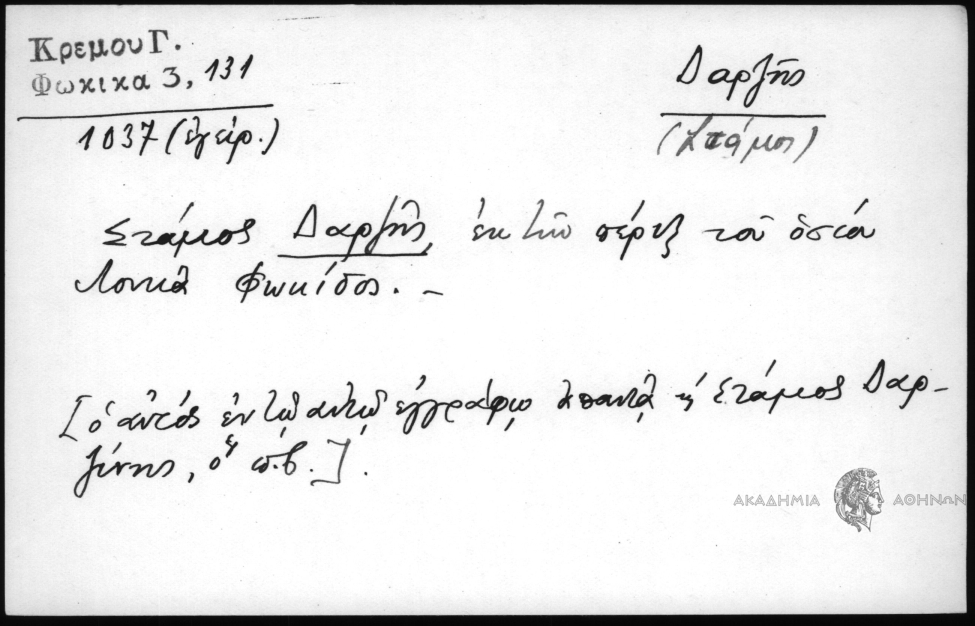 Κρεμου Γ.
Φωκικα 3, 131
1037 (ἐγείρ.)
Δαρζῆς
(Στάμος)
Στάμος Δαρζῆς, ἐκ τῶν πέριξ τοῦ ὁσίου
Λουκᾶ Φωκίδος. –
[ὁ αὐτὸς ἐν τῷ αὐτῷ ἐγγράφῳ ἀπαντᾷ ἡ Στάμος Δαρ-
ζίνης, ὃ β.].
ΑΚΑΔΗΜΙΑ ΑΘΗΝΩΝ